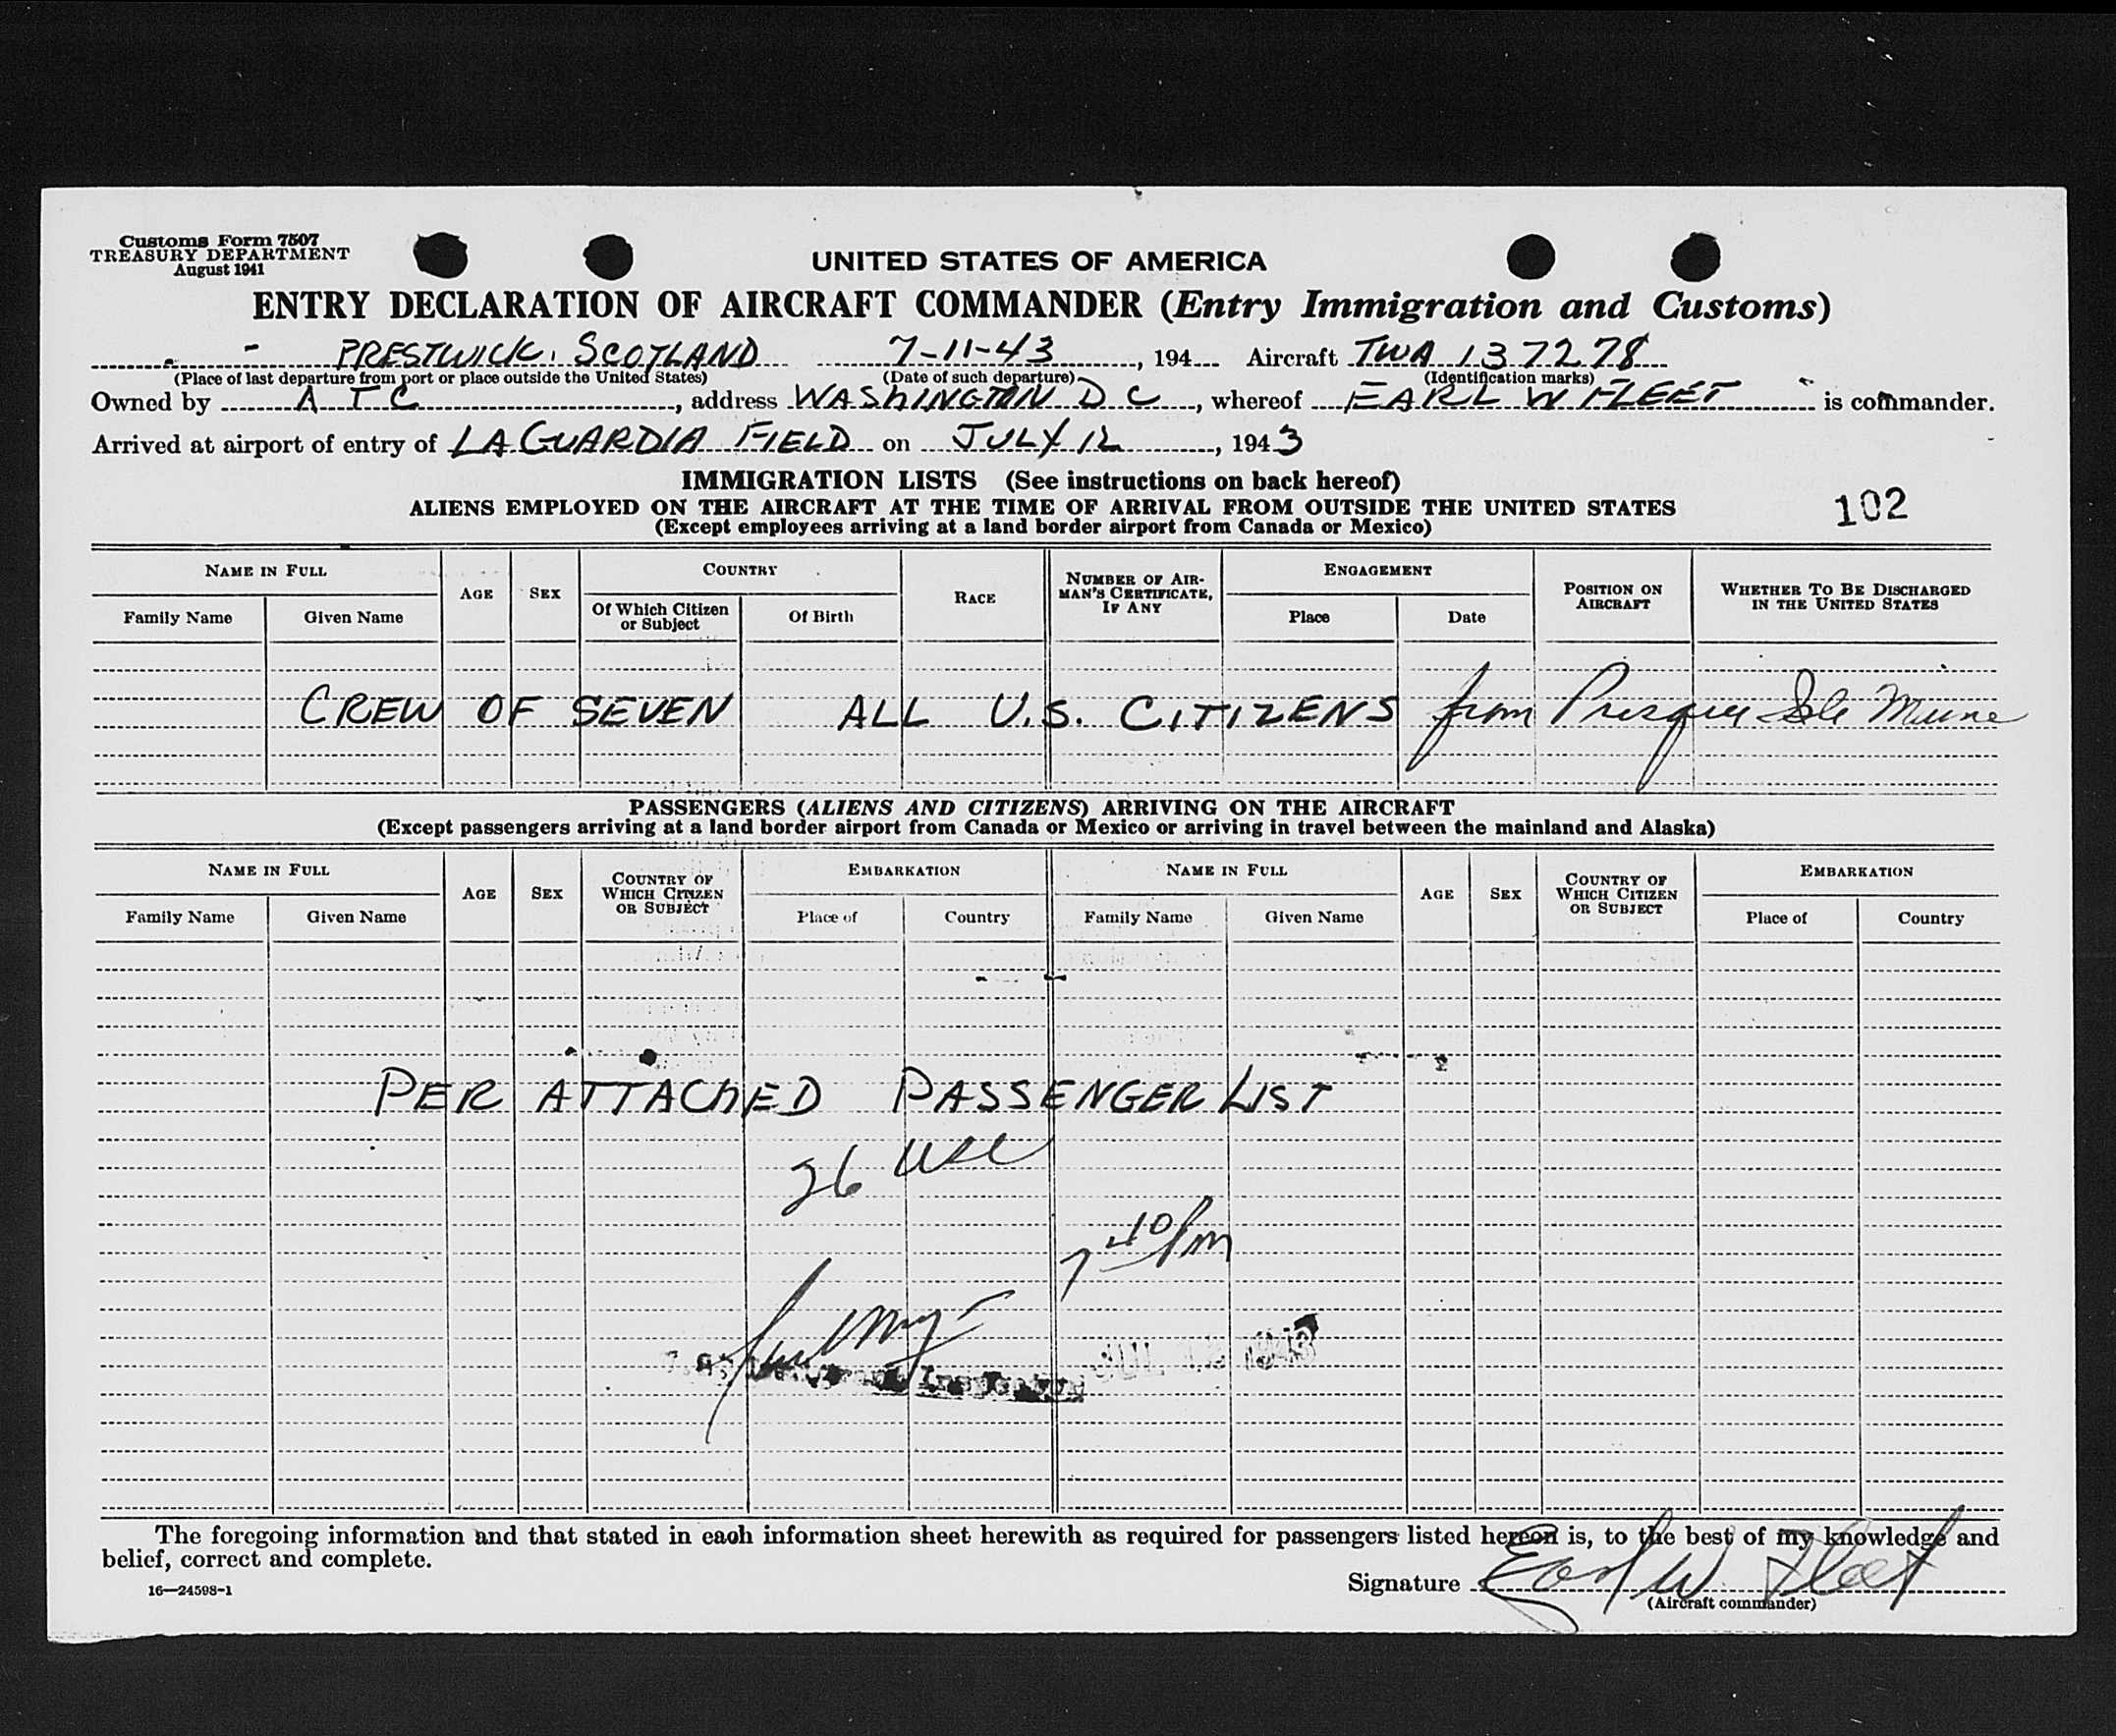 Customs Form 7507
TREASURY DEPARTMENT
August 1941
UNITED STATES OF AMERICA
ENTRY DECLARATION OF AIRCRAFT COMMANDER (Entry Immigration and Customs)
PRESTWICK, SCOTLAND 7-11-43, 194 Aircraft TWA 137278
(Place of last departure from port or place outside the United States) (Date of such departure) (Identification marks)
Owned by A T C, address WAShINGTON D C, whereof EARL W FLEET is commander.
Arrived at airport of entry of LA GUARDIA FIELD on JULY 12, 1943
IMMIGRATION LISTS (See instructions on back hereof)
ALIENS EMPLOYED ON THE AIRCRAFT AT THE TIME OF ARRIVAL FROM OUTSIDE THE UNITED STATES
102
(Except employees arriving at a land border airport from Canada or Mexico)
NAME IN FULL AGE SEX COUNTRY RACE NUMBER OF AIRMAN'S CERTIFICATE, IF ANY ENGAGEMENT POSITION ON AIRCRAFT WHETHER TO BE DISCHARGED IN THE UNITED STATES
Family Name Given Name Of Which Citizen or Subject Of Birth Place Date
CREW OF SEVEN ALL U.S. CITIZENS from Presque Isle Maine
PASSENGERS (ALIENS AND CITIZENS) ARRIVING ON THE AIRCRAFT
(Except passengers arriving at a land border airport from Canada or Mexico or arriving in travel between the mainland and Alaska)
NAME IN FULL AGE SEX COUNTRY OF WHICH CITIZEN OR SUBJECT EMBARKATION NAME IN FULL AGE SEX COUNTRY OF WHICH CITIZEN OR SUBJECT EMBARKATION
Family Name Given Name Place of Country Family Name Given Name Place of Country
PER ATTAChED PASSENGER LIST
26 USC
7 40 Pm
JUL 12 1943
Inspector
The foregoing information and that stated in each information sheet herewith as required for passengers listed hereon is, to the best of my knowledge and
belief, correct and complete.
16—24598-1
Signature Earl W. Fleet
(Aircraft commander)